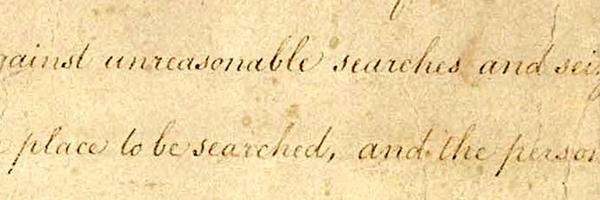 gainst unreasonable searches and seiz
place to be searched, and the person